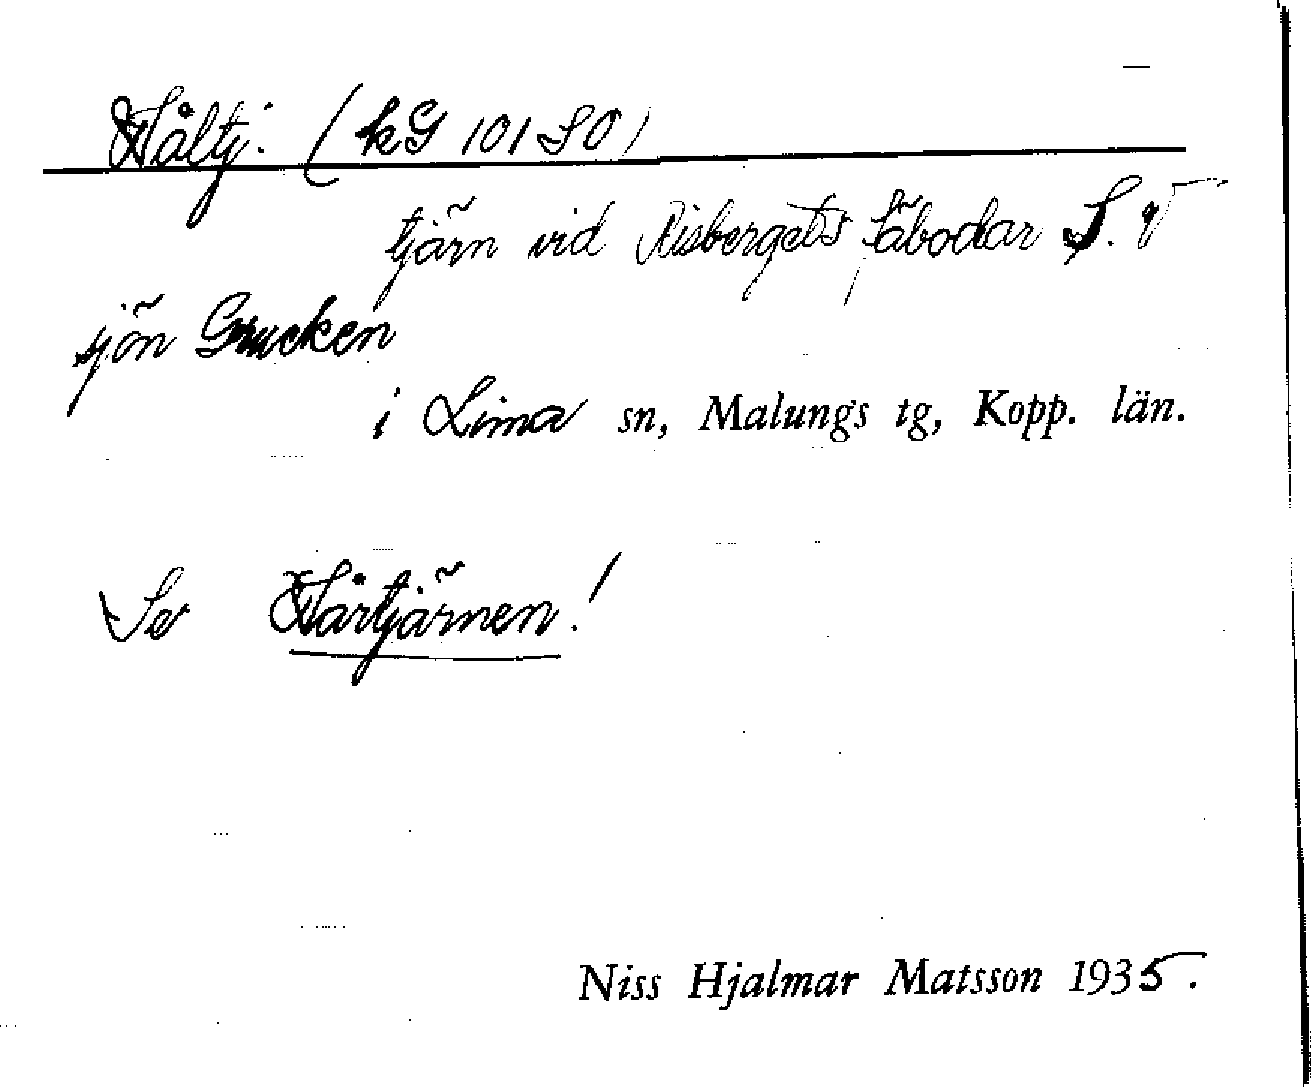 Håltj. (kG 101 SO)
tjärn vid Risbergets fäbodar S.
sjön Grucken
i Lima sn, Malungs tg, Kopp. län.
Se Hårtjärnen!
Niss Hjalmar Matsson 1935.